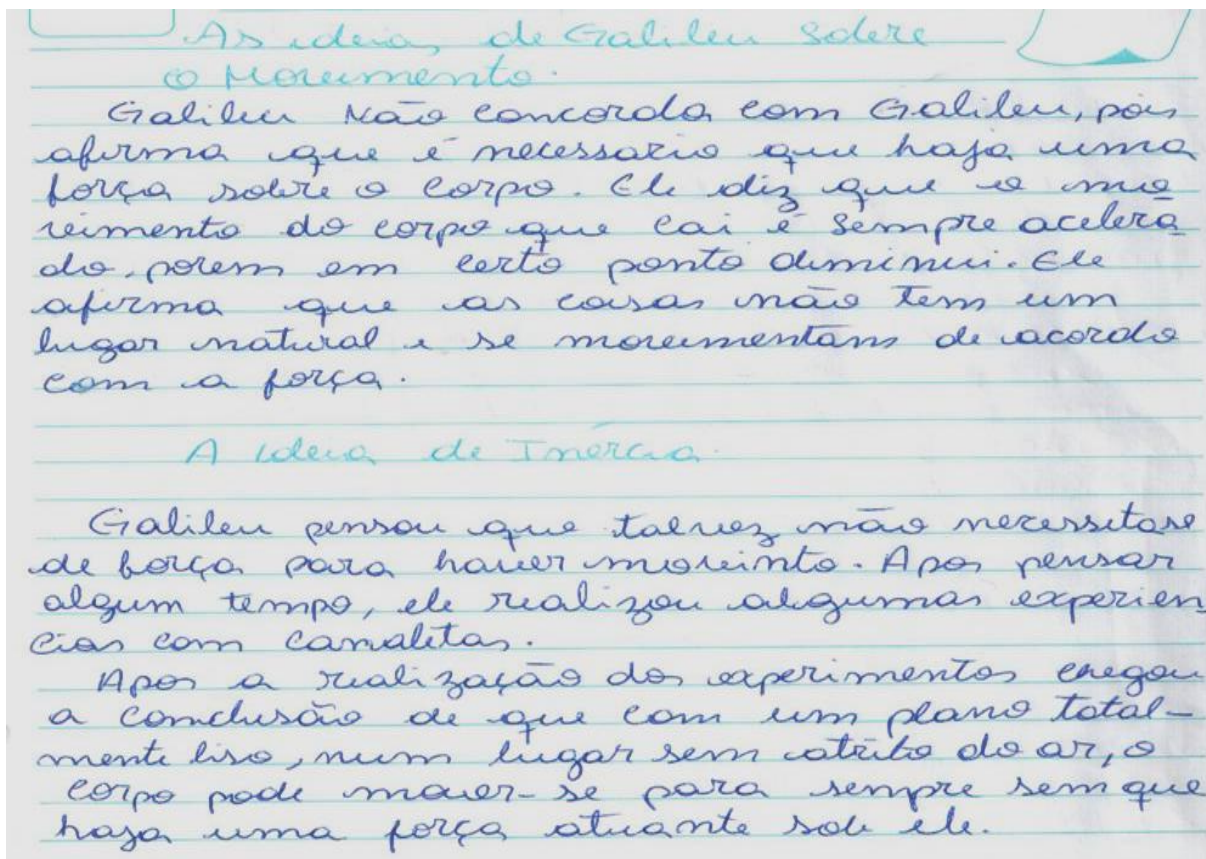 As ideias de Galileu sobre
o Movimento.
Galileu Não concorda com Galileu, pois
afirma que é necessario que haja uma
força sobre o corpo. Ele diz que o mo
vimento do corpo que cai é sempre acelera
do, porem em certo ponto diminui. Ele
afirma que as coisas não tem um
lugar natural e se movimentam de acordo
com a força.
A ideia de Inércia.
Galileu pensou que talvez não necessitase
de força para haver movinto. Apos pensar
algum tempo, ele realizou algumas experien
cias com canaletas.
Apos a realização dos experimentos chegou
a conclusão de que com um plano total-
mente liso, num lugar sem atrito do ar, o
corpo pode mover-se para sempre sem que
haja uma força atuante sob ele.